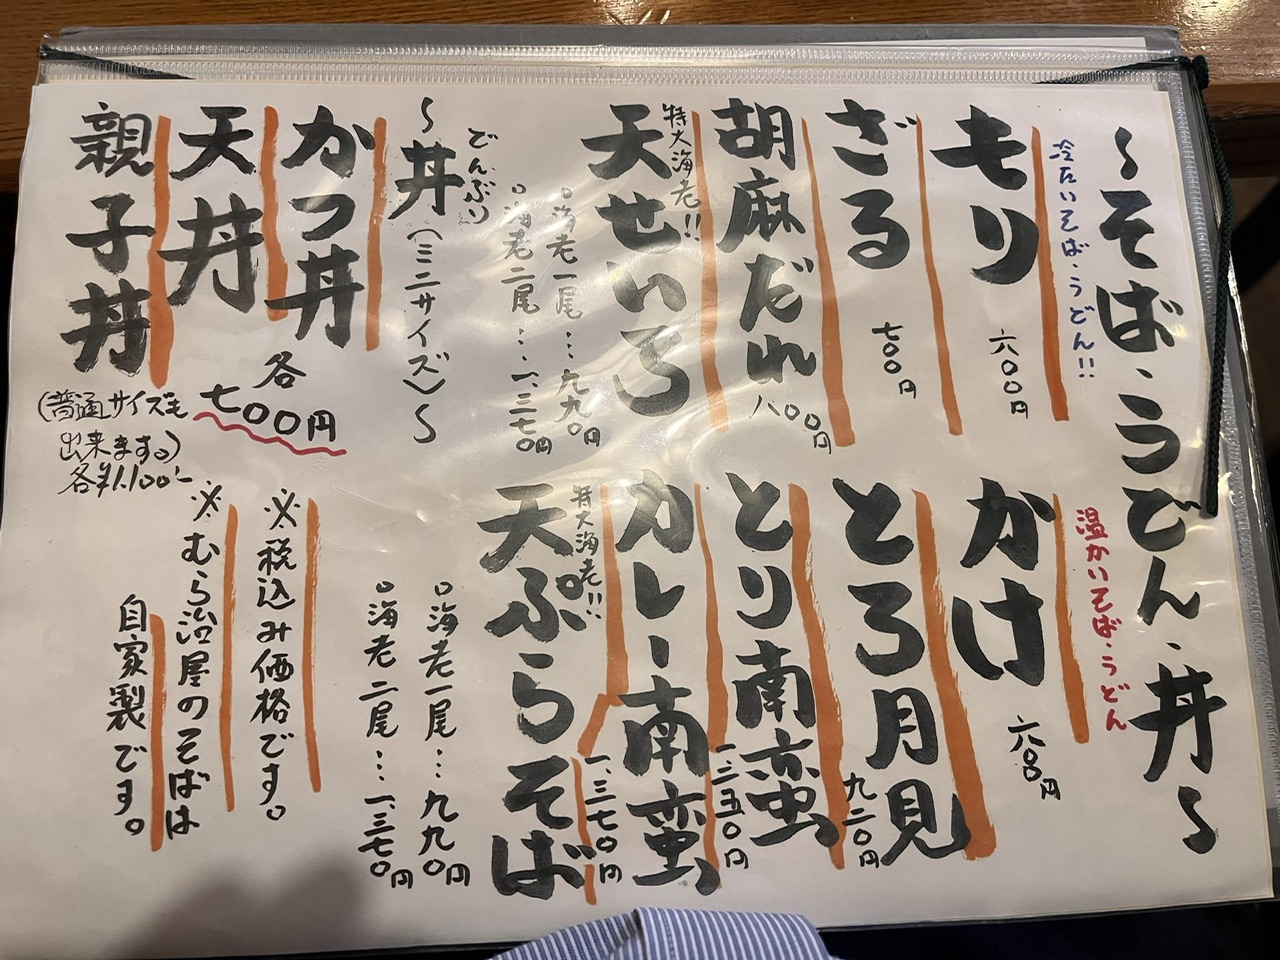 〜そば・うどん・丼〜
冷たいそば・うどん!!
もり
六〇〇円
ざる
七〇〇円
胡麻だれ
八〇〇円
特大海老!!
天せいろ
○海老一尾…九九〇円
○海老二尾…一、三七〇円
温かいそば・うどん
かけ
六〇〇円
とろ月見
九二〇円
とり南蛮
一、三五〇円
カレー南蛮
一、三七〇円
特大海老!!
天ぷらそば
○海老一尾…九九〇円
○海老二尾…一、三七〇円
どんぶり
〜丼(ミニサイズ)〜
かつ丼
天丼
親子丼
各
七〇〇円
(普通サイズも
出来ます。)
各¥1,100-
※税込み価格です。
※むら治屋のそばは
自家製です。